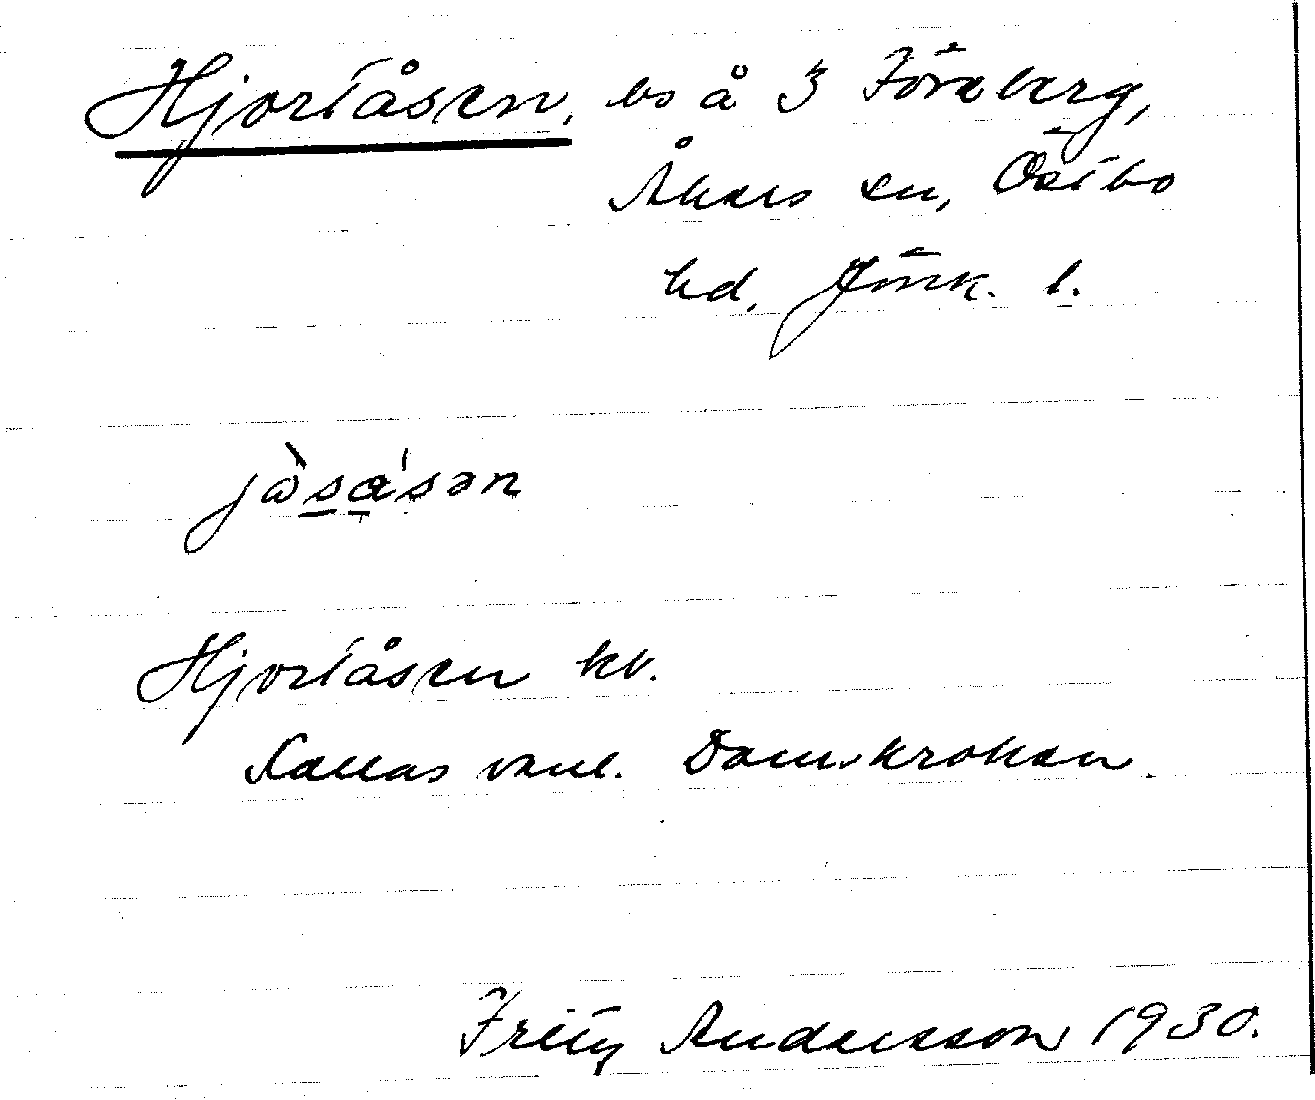 Hjortåsen, bs å 3 Föreberg,
Åkers sn, Östbo
hd, Jönk. l.
jòsa'sən
Hjortåsen kv.
Kallas vanl. Damskroken.
Fritz Andersson 1930.